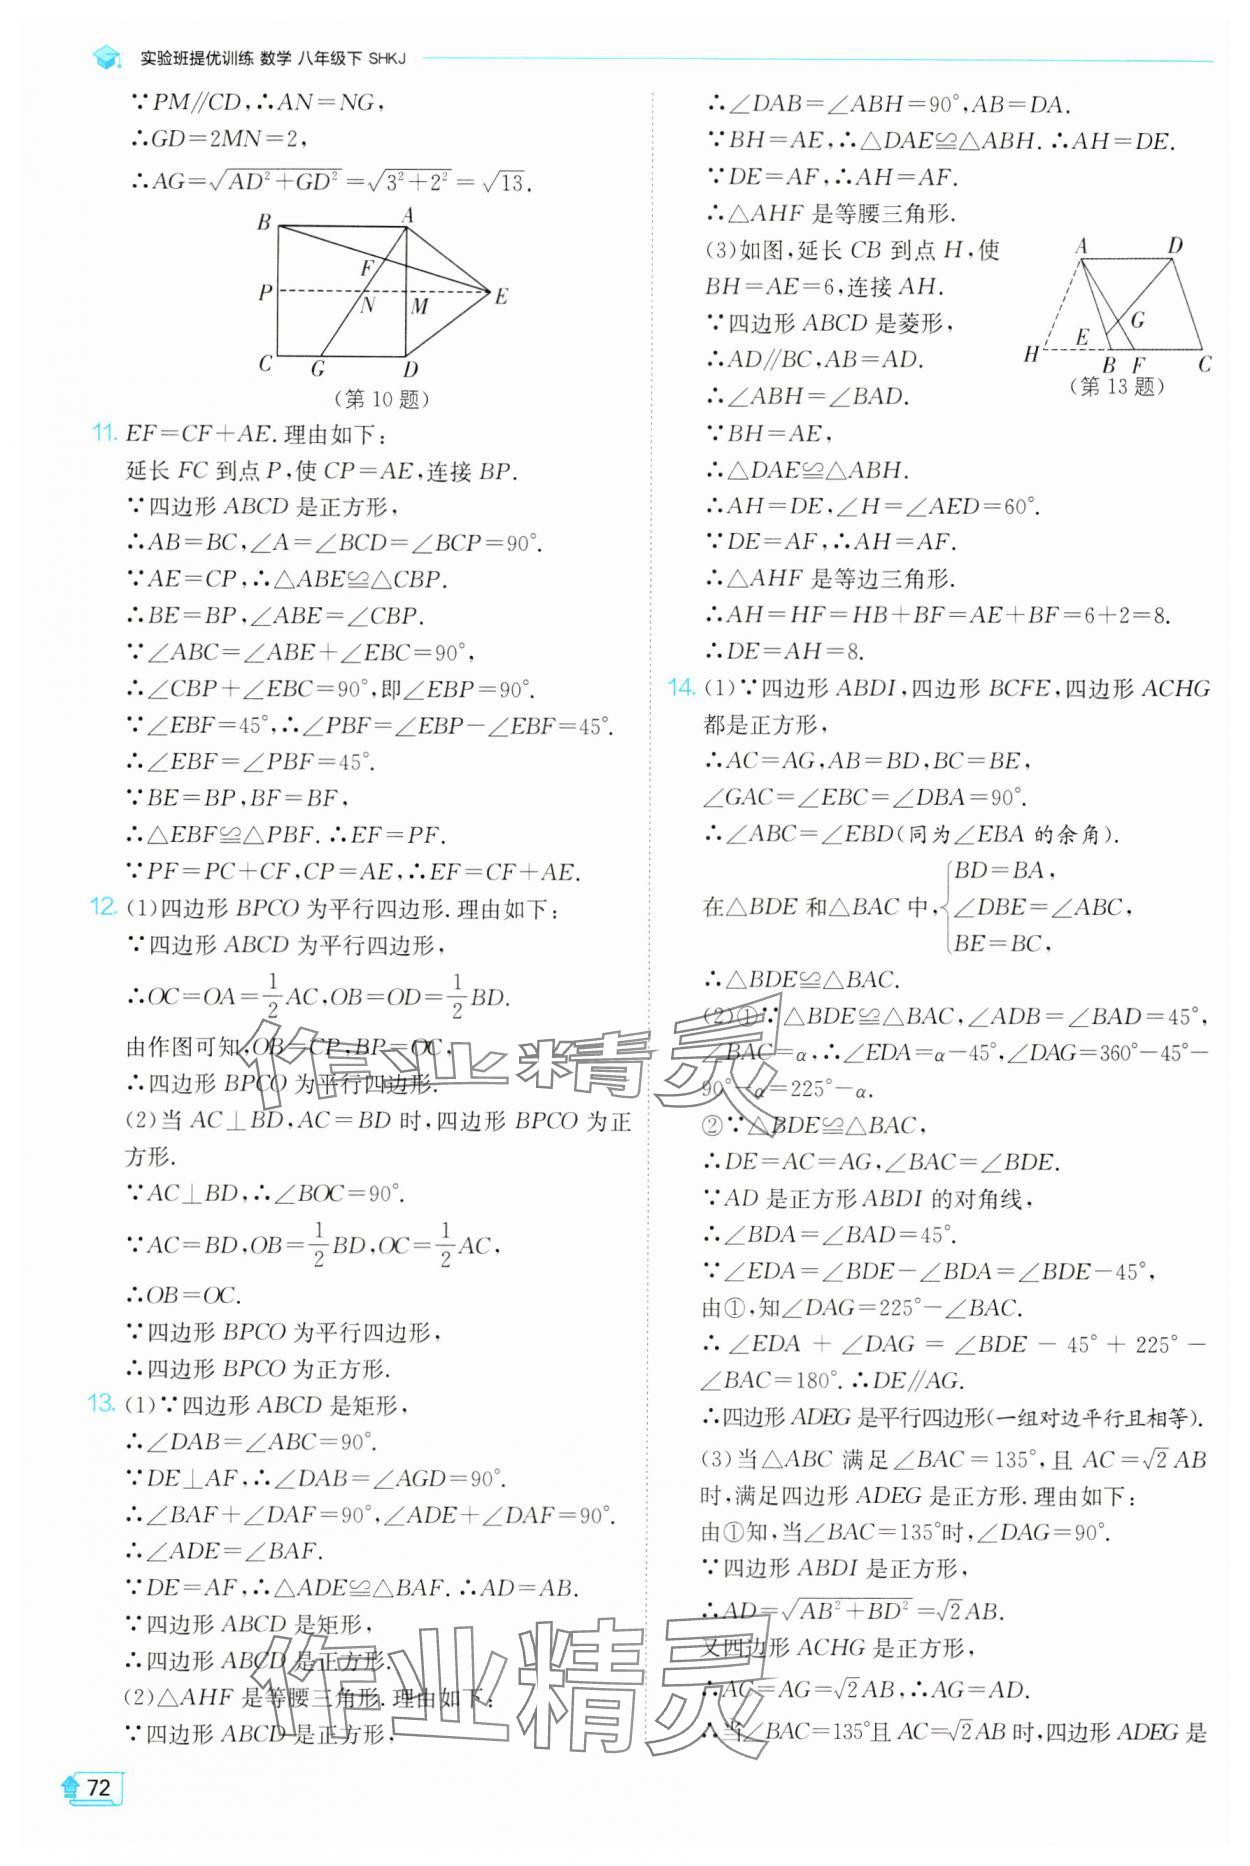 实验班提优训练 数学 八年级下 SHKJ
∵PM∥CD,∴AN=NG,
∴GD=2MN=2,
∴AG=√(AD²+GD²)=√(3²+2²)=√13.
B A
F
P N M E
C G D
(第10题)
11. EF=CF+AE.理由如下:
延长FC到点P,使CP=AE,连接BP.
∵四边形ABCD是正方形,
∴AB=BC,∠A=∠BCD=∠BCP=90°.
∵AE=CP,∴△ABE≌△CBP.
∴BE=BP,∠ABE=∠CBP.
∵∠ABC=∠ABE+∠EBC=90°,
∴∠CBP+∠EBC=90°,即∠EBP=90°.
∵∠EBF=45°,∴∠PBF=∠EBP-∠EBF=45°.
∴∠EBF=∠PBF=45°.
∵BE=BP,BF=BF,
∴△EBF≌△PBF.∴EF=PF.
∵PF=PC+CF,CP=AE,∴EF=CF+AE.
12. (1)四边形BPCO为平行四边形.理由如下:
∵四边形ABCD为平行四边形,
∴OC=OA=1/2AC,OB=OD=1/2BD.
由作图可知,OB=CP,BP=OC,
∴四边形BPCO为平行四边形.
(2)当AC⊥BD,AC=BD时,四边形BPCO为正
方形.
∵AC⊥BD,∴∠BOC=90°.
∵AC=BD,OB=1/2BD,OC=1/2AC,
∴OB=OC.
∵四边形BPCO为平行四边形,
∴四边形BPCO为正方形.
13. (1)∵四边形ABCD是矩形,
∴∠DAB=∠ABC=90°.
∵DE⊥AF,∴∠DAB=∠AGD=90°.
∴∠BAF+∠DAF=90°,∠ADE+∠DAF=90°.
∴∠ADE=∠BAF.
∵DE=AF,∴△ADE≌△BAF.∴AD=AB.
∵四边形ABCD是矩形,
∴四边形ABCD是正方形.
(2)△AHF是等腰三角形.理由如下:
∵四边形ABCD是正方形,
∴∠DAB=∠ABH=90°,AB=DA.
∵BH=AE,∴△DAE≌△ABH.∴AH=DE.
∵DE=AF,∴AH=AF.
∴△AHF是等腰三角形.
(3)如图,延长CB到点H,使
BH=AE=6,连接AH.
∵四边形ABCD是菱形,
∴AD∥BC,AB=AD.
∴∠ABH=∠BAD.
A D
E G
H B F C
(第13题)
∵BH=AE,
∴△DAE≌△ABH.
∴AH=DE,∠H=∠AED=60°.
∵DE=AF,∴AH=AF.
∴△AHF是等边三角形.
∴AH=HF=HB+BF=AE+BF=6+2=8.
∴DE=AH=8.
14. (1)∵四边形ABDI,四边形BCFE,四边形ACHG
都是正方形,
∴AC=AG,AB=BD,BC=BE,
∠GAC=∠EBC=∠DBA=90°.
∴∠ABC=∠EBD(同为∠EBA的余角).
在△BDE和△BAC中,{BD=BA,
∠DBE=∠ABC,
BE=BC,
∴△BDE≌△BAC.
(2)①∵△BDE≌△BAC,∠ADB=∠BAD=45°,
∠BAC=α,∴∠EDA=α-45°,∠DAG=360°-45°-
90°-α=225°-α.
②∵△BDE≌△BAC,
∴DE=AC=AG,∠BAC=∠BDE.
∵AD是正方形ABDI的对角线,
∴∠BDA=∠BAD=45°.
∵∠EDA=∠BDE-∠BDA=∠BDE-45°,
由①,知∠DAG=225°-∠BAC.
∴∠EDA+∠DAG=∠BDE-45°+225°-
∠BAC=180°.∴DE∥AG.
∴四边形ADEG是平行四边形(一组对边平行且相等).
(3)当△ABC满足∠BAC=135°,且AC=√2AB
时,满足四边形ADEG是正方形.理由如下:
由①知,当∠BAC=135°时,∠DAG=90°.
∵四边形ABDI是正方形,
∴AD=√(AB²+BD²)=√2AB.
又四边形ACHG是正方形,
∴AC=AG=√2AB,∴AG=AD.
∴当∠BAC=135°且AC=√2AB时,四边形ADEG是
作业精灵
作业精灵
72